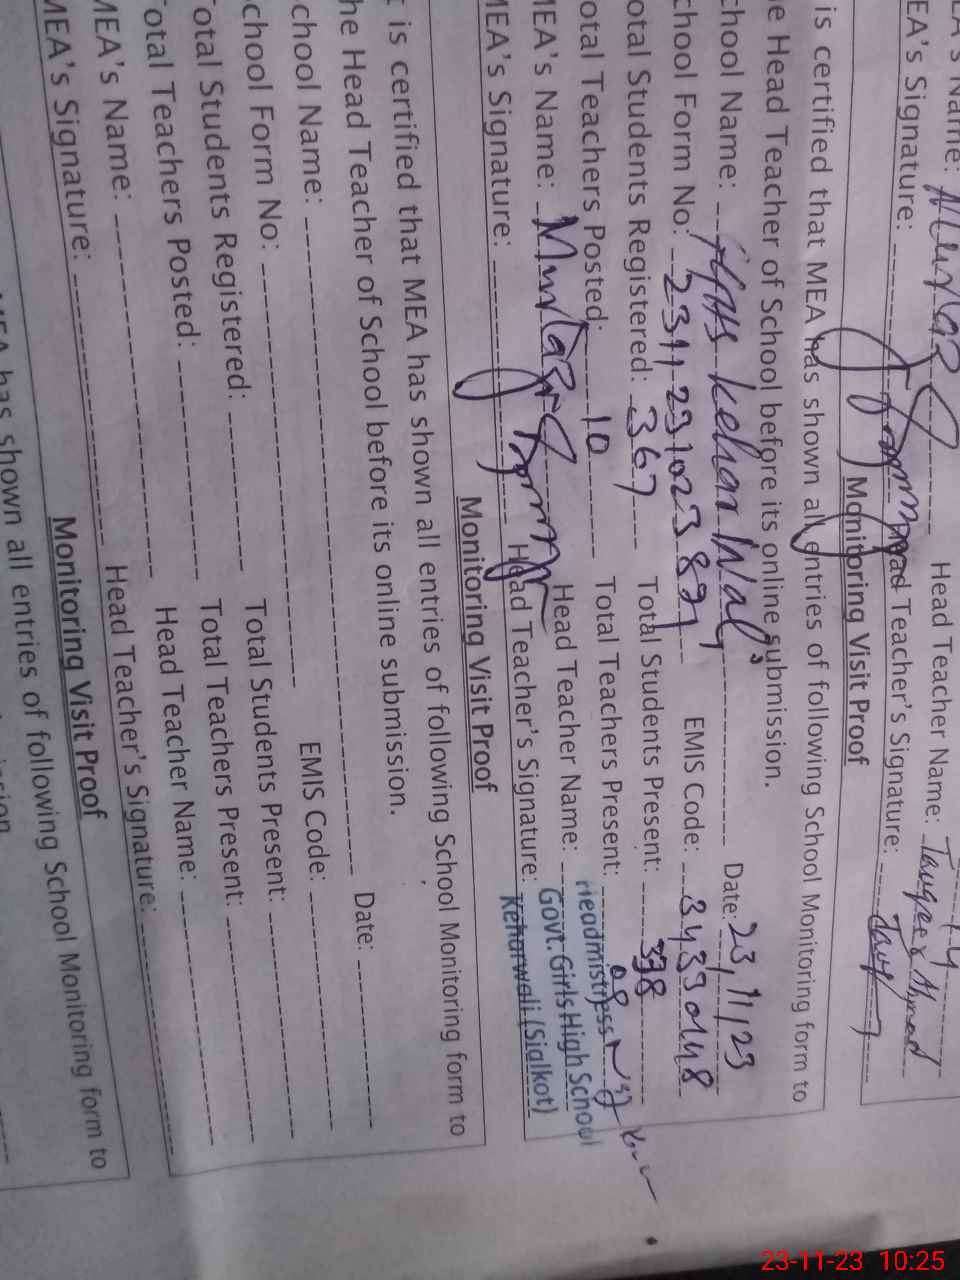 EA's Name: Mumtaz Head Teacher Name: Tauqeer Ahmad
EA's Signature: Head Teacher's Signature:
Monitoring Visit Proof
is certified that MEA has shown all entries of following School Monitoring form to
e Head Teacher of School before its online submission.
chool Name: GHS Keharwali Date: 23/11/23
chool Form No: EMIS Code:
otal Students Registered: 367 Total Students Present: 338
otal Teachers Posted: 10 Total Teachers Present: 08
MEA's Name: Mumtaz Head Teacher Name:
MEA's Signature: Head Teacher's Signature:
Headmistress
Govt. Girls High School
Keharwali (Sialkot)
Monitoring Visit Proof
t is certified that MEA has shown all entries of following School Monitoring form to
he Head Teacher of School before its online submission.
chool Name: Date:
chool Form No: EMIS Code:
otal Students Registered: Total Students Present:
otal Teachers Posted: Total Teachers Present:
MEA's Name: Head Teacher Name:
MEA's Signature: Head Teacher's Signature:
Monitoring Visit Proof
MEA has shown all entries of following School Monitoring form to
23-11-23 10:25